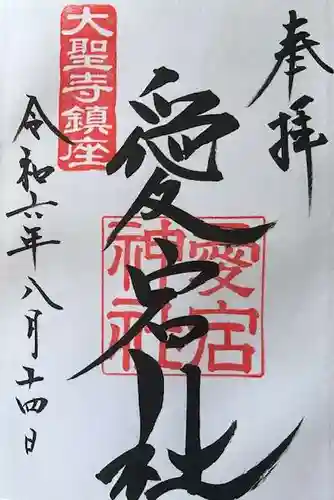 奉拝
大聖寺鎮座
愛宕社
愛宕
神社
令和六年八月十四日